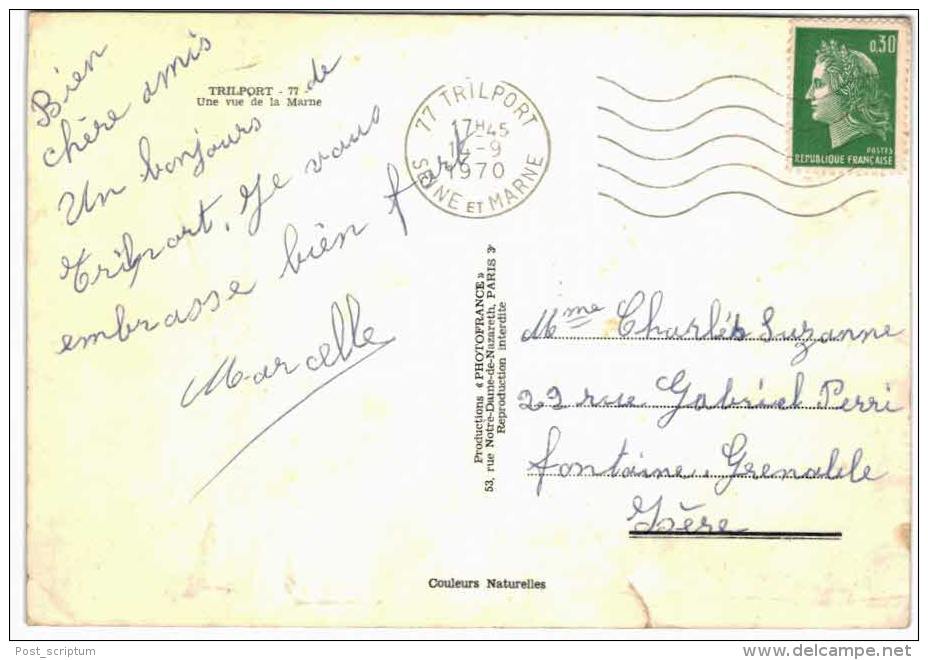 TRILPORT - 77 -
Une vue de la Marne
Bien
chère amis
Un bonjours de
Trilport. Je vous
embrasse bien fort
Marcelle
77 TRILPORT
17H45
14-9
1970
SEINE ET MARNE
0,30
POSTES
REPUBLIQUE FRANÇAISE
Productions « PHOTOFRANCE »
53, rue Notre-Dame-de-Nazareth, PARIS 3e
Reproduction interdite
Mme Charlés Suzanne
29 rue Gabriel Perri
fontaine. Grenoble
Isère
Couleurs Naturelles
Post_scriptum
www.delcampe.net